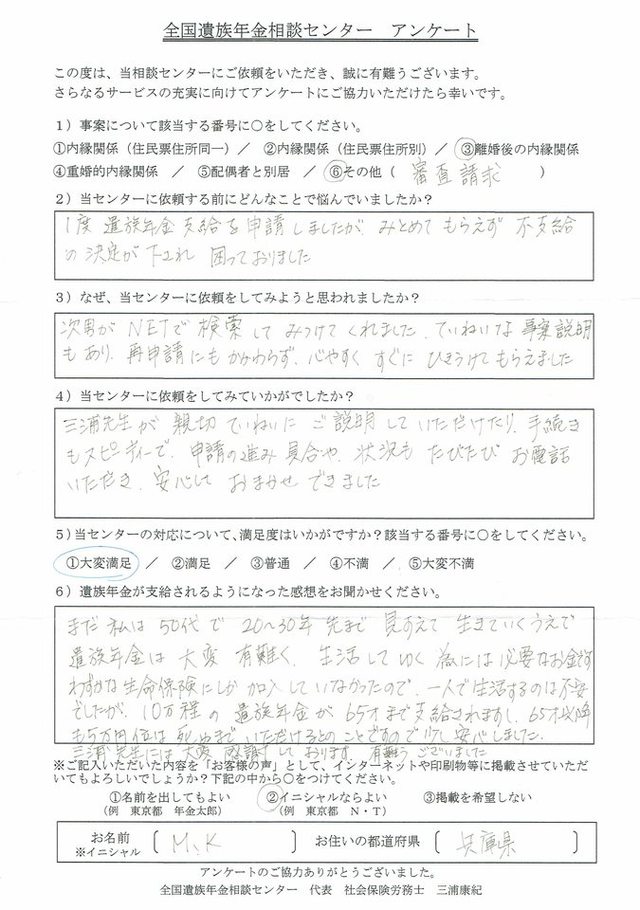 全国遺族年金相談センター　アンケート
この度は、当相談センターにご依頼をいただき、誠に有難うございます。
さらなるサービスの充実に向けてアンケートにご協力いただけたら幸いです。
1）事案について該当する番号に○をしてください。
①内縁関係（住民票住所同一）／ ②内縁関係（住民票住所別）／ ③離婚後の内縁関係
④重婚的内縁関係 ／ ⑤配偶者と別居 ／ ⑥その他（ 審査請求 ）
2）当センターに依頼する前にどんなことで悩んでいましたか？
1度 遺族年金 支給を申請しましたが、みとめて もらえず 不支給
の 決定が 下され 困っておりました
3）なぜ、当センターに依頼をしてみようと思われましたか？
次男が NETで 検索して みつけて くれました、ていねいな 事案説明
もあり、再申請にも かかわらず、心やすく すぐに ひきうけて もらえました
4）当センターに依頼をしてみていかがでしたか？
三浦先生が 親切 ていねいに ご説明して いただけたり、手続き
もスピーディーで、申請の進み具合や、状況も たびたび お電話
いただき、安心して おまかせ できました
5）当センターの対応について、満足度はいかがですか？該当する番号に○をしてください。
①大変満足 ／ ②満足 ／ ③普通 ／ ④不満 ／ ⑤大変不満
6）遺族年金が支給されるようになった感想をお聞かせください。
まだ 私は 50代で 20～30年 先まで 見すえて 生きていくうえで
遺族年金は 大変 有難く、生活して ゆく 為には 必要なお金です
わずかな生命保険にしか加入していなかったので、一人で生活するのは不安
でしたが、10万程の 遺族年金が 65才まで支給されますし、65才以降
も5万円位は 死ぬまで いただけるとの ことですので少し 安心しました。
三浦先生には 大変 感謝して おります 有難うございました
※ご記入いただいた内容を「お客様の声」として、インターネットや印刷物等に掲載させていただ
いてもよろしいでしょうか？下記の中から○をつけてください。
①名前を出してもよい ②イニシャルならよい ③掲載を希望しない
（例 東京都 年金太郎） （例 東京都 N・T）
お名前 M.K お住いの都道府県 兵庫県
※イニシャル
アンケートのご協力ありがとうございました。
全国遺族年金相談センター 代表 社会保険労務士 三浦康紀